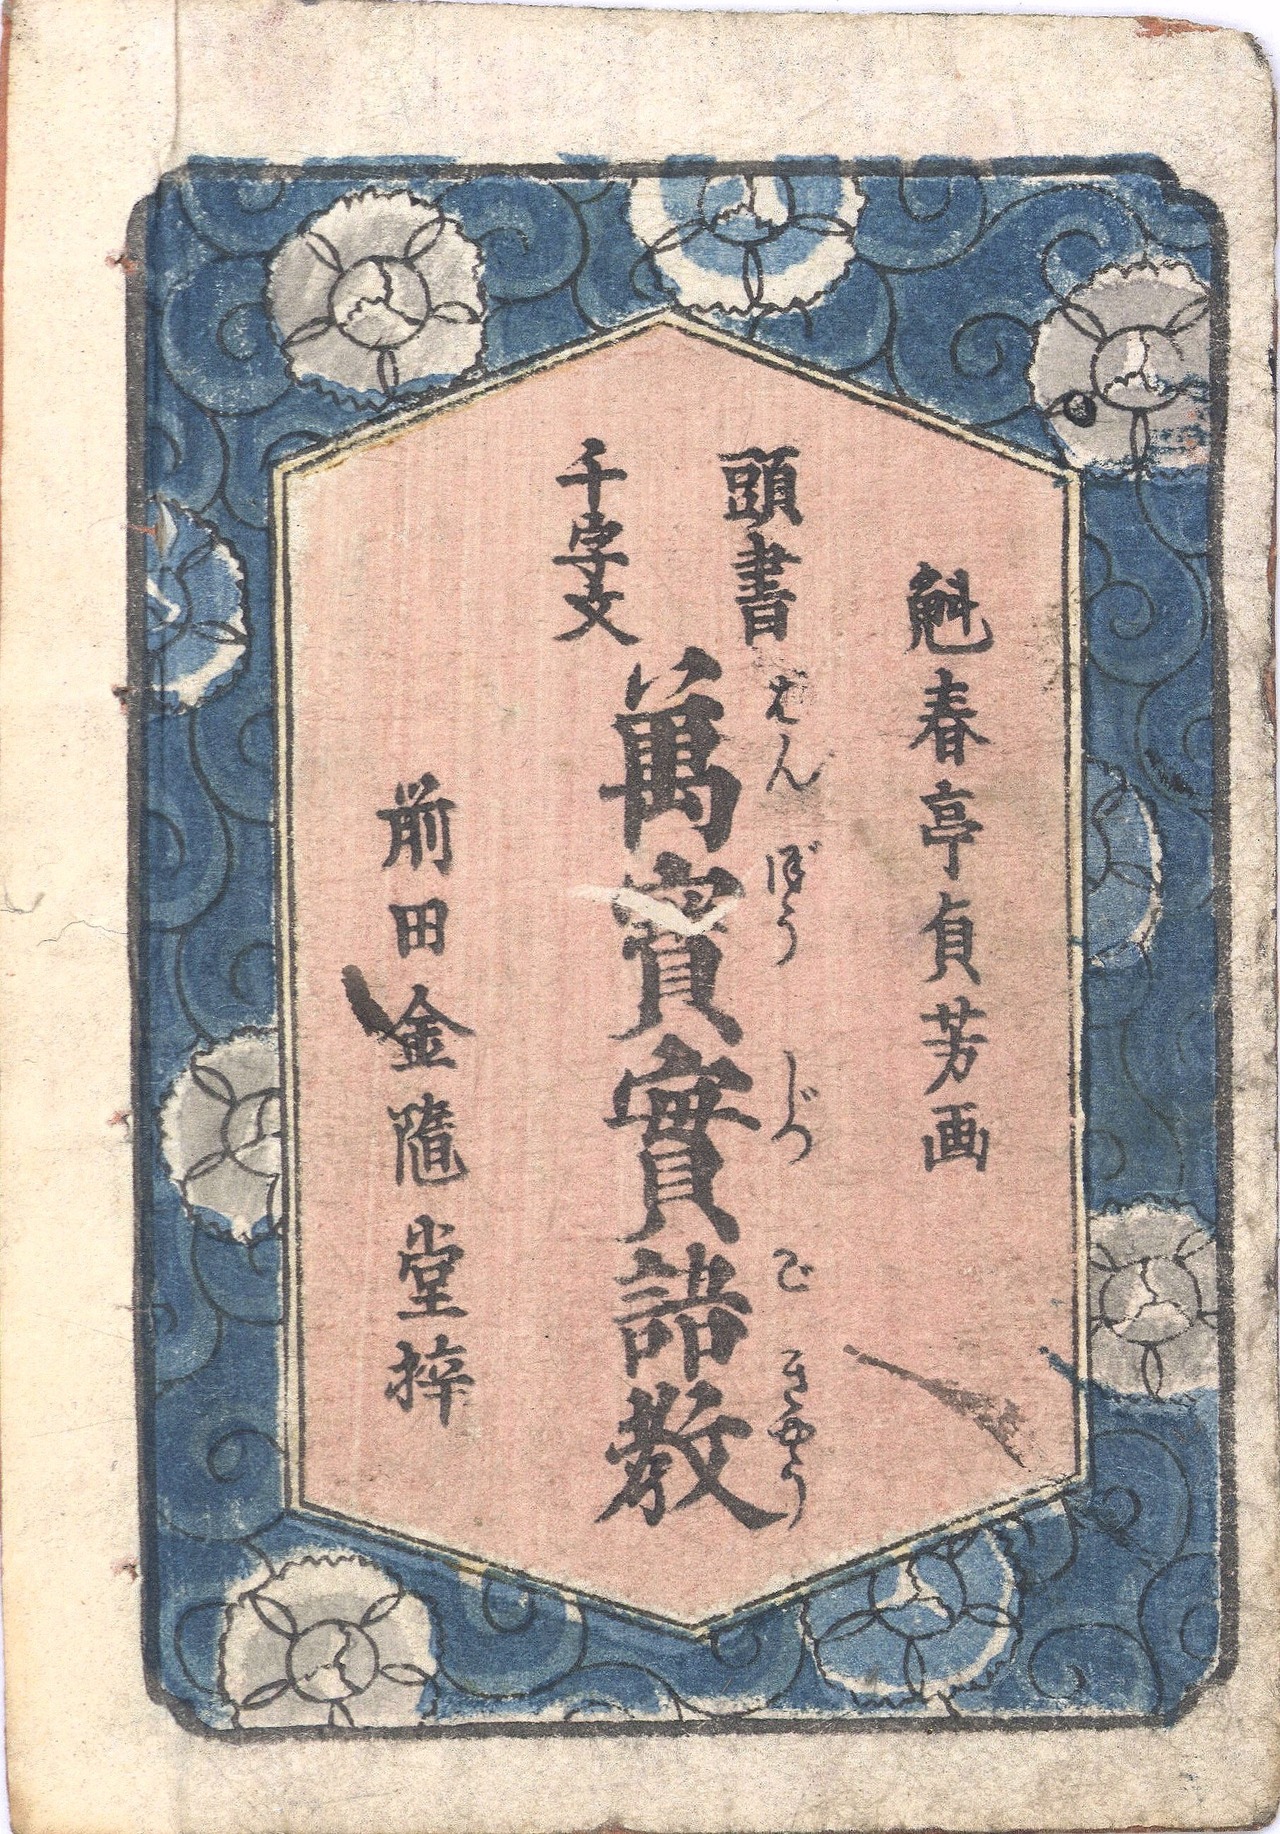 魁春亭貞芳画
頭書
千字文
萬寳實語教
まんぼうじつごきやう
前田金隨堂梓